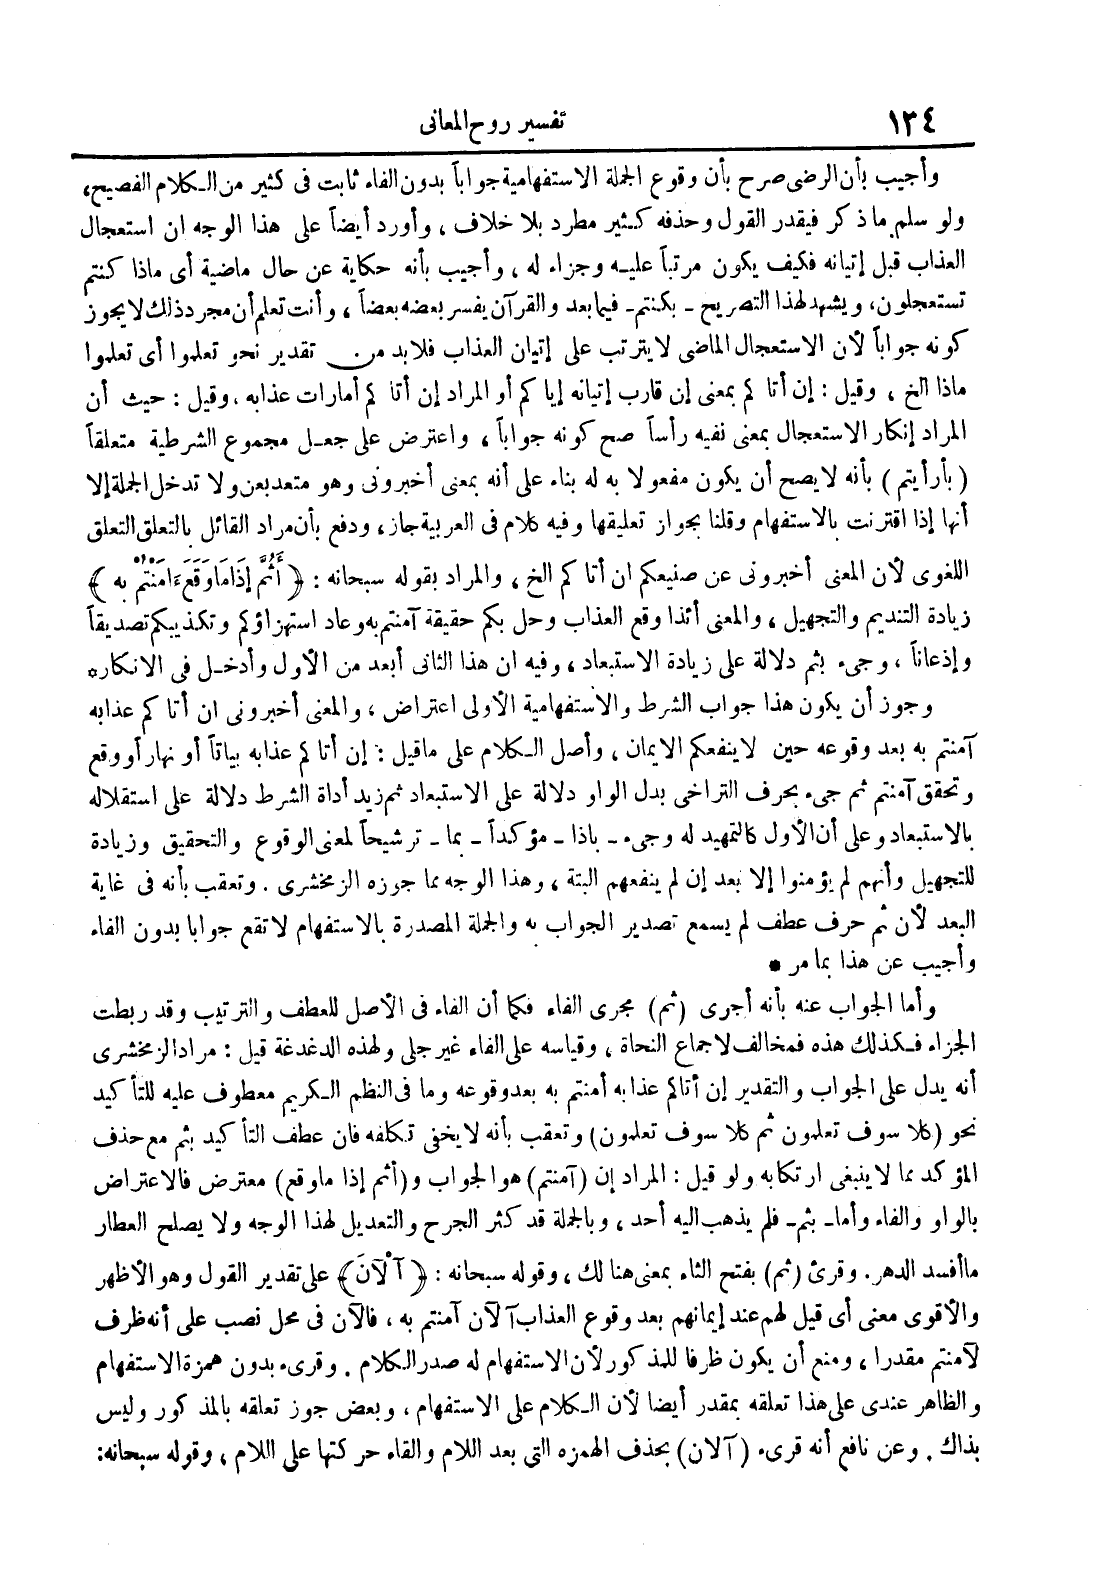 ١٣٤
تفسير روح المعانى
وأجيب بأن الرضى صرح بأن وقوع الجملة الاستفهامية جواباً بدون الفاء ثابت فى كثير من الكلام الفصيح،
ولو سلم ماذكر فيقدر القول وحذفه كثير مطرد بلا خلاف، وأورد أيضاً على هذا الوجه ان استعجال
العذاب قبل إتيانه فكيف يكون مرتباً عليه وجزاء له، وأجيب بأنه حكاية عن حال ماضية أى ماذا كنتم
تستعجلون، ويشهد لهذا التصريح - بكنتم- فيما بعد والقرآن يفسر بعضه بعضاً، وأنت تعلم أن مجرد ذلك لايجوز
كونه جواباً لأن الاستعجال الماضى لايترتب على إتيان العذاب فلابد من تقدير نحو تعلموا أى تعلموا
ماذا الخ، وقيل: إن أتاكم بمعنى إن قارب إتيانه إياكم أو المراد إن أتاكم أمارات عذابه، وقيل: حيث أن
المراد إنكار الاستعجال بمعنى نفيه رأساً صح كونه جواباً، واعترض على جعل مجموع الشرطية متعلقاً
(بأرأيتم) بأنه لايصح أن يكون مفعولا به له بناء على أنه بمعنى أخبرونى وهو متعد بعن ولا تدخل الجملة إلا
أنها إذا اقترنت بالاستفهام وقلنا بجواز تعليقها وفيه كلام فى العربية جاز، ودفع بأن مراد القائل بالتعلق التعلق
اللغوى لأن المعنى أخبرونى عن صنيعكم ان أتاكم الخ، والمراد بقوله سبحانه: ﴿ أَثُمَّ إِذَا مَا وَقَعَ ءَامَنْتُمْ به ﴾
زيادة التنديم والتجهيل، والمعنى أئذا وقع العذاب وحل بكم حقيقة آمنتم به وعاد استهزاؤكم وتكذيبكم تصديقاً
وإذعاناً، وجىء بثم دلالة على زيادة الاستبعاد، وفيه ان هذا الثانى أبعد من الأول وأدخل فى الانكار*
وجوز أن يكون هذا جواب الشرط والاستفهامية الأولى اعتراض، والمعنى أخبرونى ان أتاكم عذابه
آمنتم به بعد وقوعه حين لاينفعكم الايمان، وأصل الكلام على ماقيل: إن أتاكم عذابه بياتاً أو نهاراً ووقع
وتحقق آمنتم ثم جىء بحرف التراخى بدل الواو دلالة على الاستبعاد ثم زيد أداة الشرط دلالة على استقلاله
بالاستبعاد وعلى أن الأول كالتمهيد له وجىء - باذا - مؤكداً - بما - ترشيحاً لمعنى الوقوع والتحقيق وزيادة
للتجهيل وأنهم لم يؤمنوا إلا بعد إن لم ينفعهم البتة، وهذا الوجه مما جوزه الزمخشرى. وتعقب بأنه فى غاية
البعد لأن ثم حرف عطف لم يسمع تصدير الجواب به والجملة المصدرة بالاستفهام لاتقع جوابا بدون الفاء
وأجيب عن هذا بما مر *
وأما الجواب عنه بأنه أجرى (ثم) مجرى الفاء فكما أن الفاء فى الأصل للعطف والترتيب وقد ربطت
الجزاء فكذلك هذه فمخالف لاجماع النحاة، وقياسه على الفاء غير جلى ولهذه الدغدغة قيل: مراد الزمخشرى
أنه يدل على الجواب والتقدير إن أتاكم عذابه أمنتم به بعد وقوعه وما فى النظم الكريم معطوف عليه للتأكيد
نحو (كلا سوف تعلمون ثم كلا سوف تعلمون) وتعقب بأنه لايخفى تكلفه فان عطف التأكيد بثم مع حذف
المؤكد مما لاينبغى ارتكابه ولو قيل: المراد إن (آمنتم) هو الجواب و(أثم إذا ماوقع) معترض فالاعتراض
بالواو والفاء وأما- بثم- فلم يذهب اليه أحد، وبالجملة قد كثر الجرح والتعديل لهذا الوجه ولا يصلح العطار
ماأفسد الدهر. وقرئ (ثم) بفتح الثاء بمعنى هنالك، وقوله سبحانه: ﴿ آلْآنَ﴾ على تقدير القول وهو الأظهر
والأقوى معنى أى قيل لهم عند إيمانهم بعد وقوع العذاب آلآن آمنتم به، فالآن فى محل نصب على أنه ظرف
لآمنتم مقدرا، ومنع أن يكون ظرفا للمذكور لأن الاستفهام له صدر الكلام. وقرىء بدون همزة الاستفهام
والظاهر عندى على هذا تعلقه بمقدر أيضا لأن الكلام على الاستفهام، وبعض جوز تعلقه بالمذكور وليس
بذاك. وعن نافع أنه قرىء (آلان) بحذف الهمزه التى بعد اللام والقاء حركتها على اللام، وقوله سبحانه: